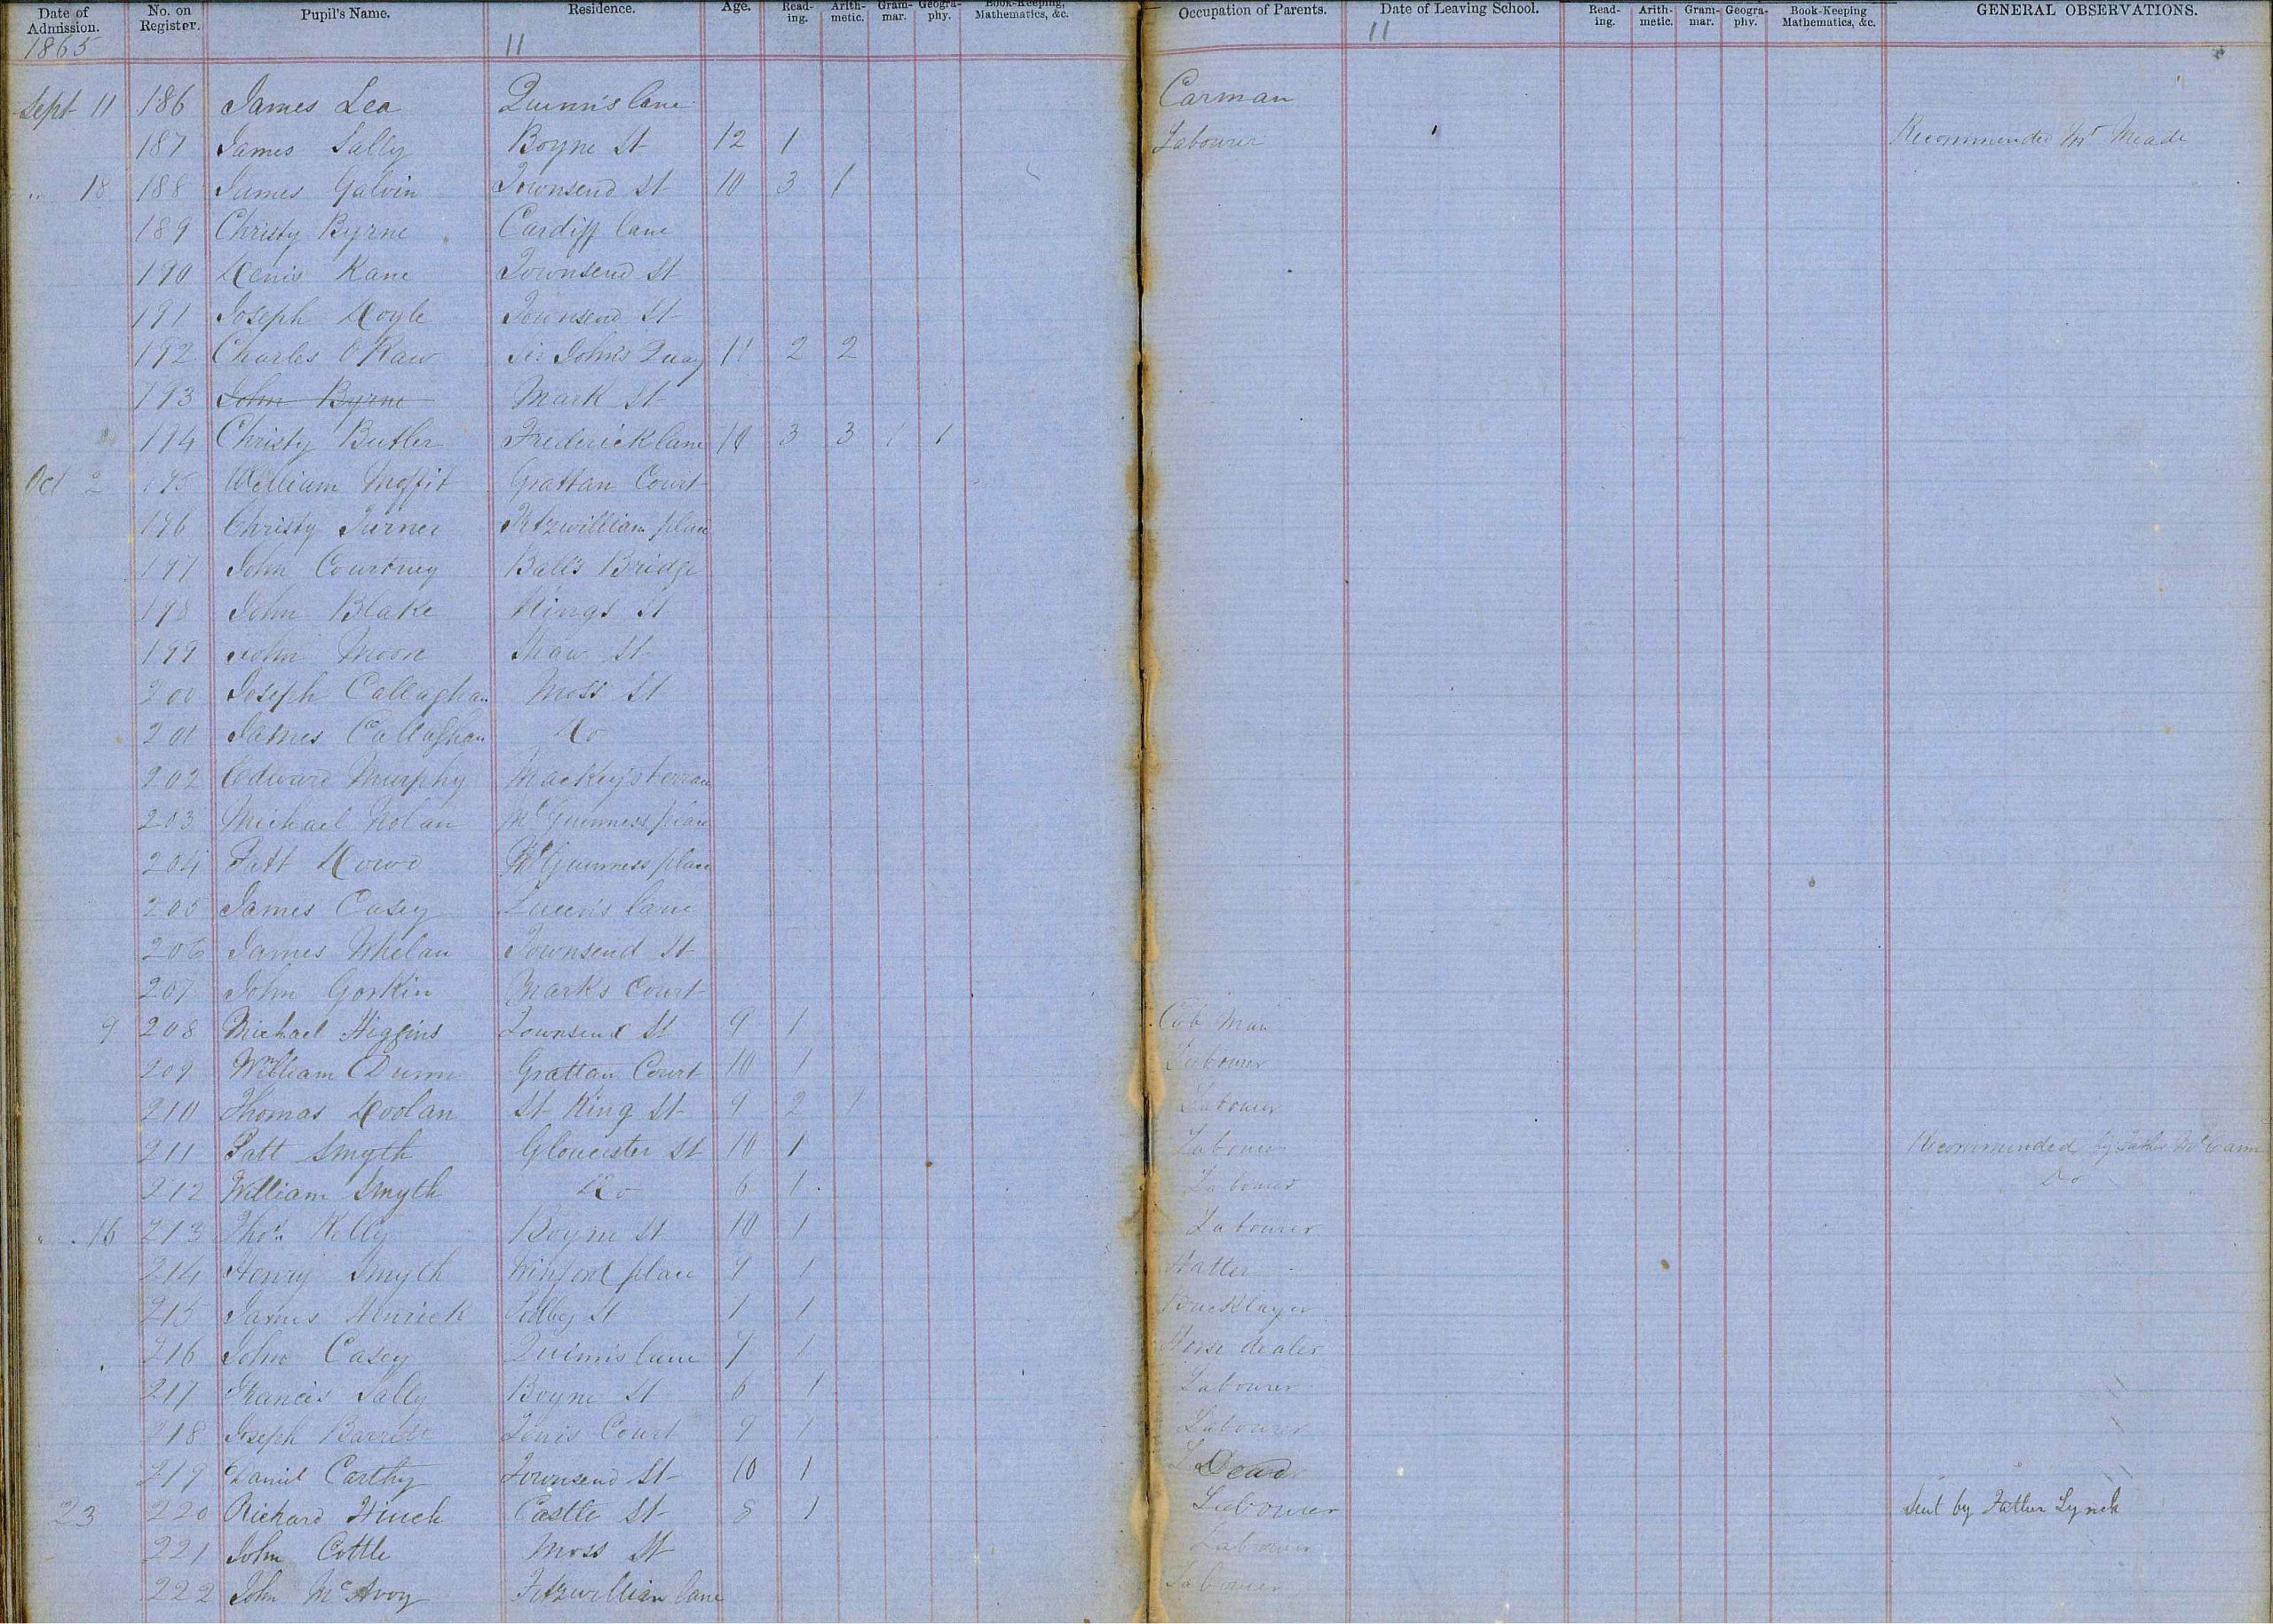 Date of Admission. No. on Register. Pupil's Name. Residence. Age. Read-ing. Arith-metic. Gram-mar. Geogra-phy. Book-Keeping, Mathematics, &c. Occupation of Parents. Date of Leaving School. Read-ing. Arith-metic. Gram-mar. Geogra-phy. Book-Keeping Mathematics, &c. GENERAL OBSERVATIONS.
1865 11 11
Sept 11 186 James Lea Quinn's lane Carman
187 James Lally Boyne St 12 1 Labourer Recommended Mr Meade
" 18 188 James Galvin Townsend St 10 3 1
189 Christy Byrne Cardiff lane
190 Denis Kane Townsend St
191 Joseph Doyle Townsend St
192 Charles O'Raw Sir John's Quay 11 2 2
193 John Byrne Mark St
194 Christy Butler Frederick lane 3 3 1 1
Oct 2 195 William Moffit Grattan Court
196 Christy Turner Fitzwilliam place
197 John Courtney Ball's Bridge
198 John Blake Kings St
199 John Moore Shaw St
200 Joseph Callaghan Moss St
201 James Callaghan Do
202 Edward Murphy Mackey's terrace
203 Michael Nolan McGuinness place
204 Patt Dowd McGuinness place
205 James Casey Queen's lane
206 James Whelan Townsend St
207 John Goskin Marks Court
9 208 Michael Higgins Townsend St 9 1 Cab Man
209 William Dunn Grattan Court 10 1 Labourer
210 Thomas Doolan St King St 9 2 1 Labourer
211 Patt Smyth Gloucester St 10 1 Labourer Recommended by Father McCann
212 William Smyth Do 6 1 Labourer Do
" 16 213 Thos. Kelly Boyne St 10 1 Labourer
214 Henry Smyth place 1 Hatter
215 James Kenrick St 1 Bricklayer
216 John Casey Quinn's lane 7 1 Horse dealer
217 Francis Lally Boyne St 6 1 Labourer
218 Joseph Barrett Court 1 Labourer
219 Daniel Carthy Townsend St 10 1 Dead
23 220 Richard Hinch Castle St 8 1 Labourer Sent by Father Lynch
221 John Cottle Moss St Labourer
222 John McAvoy Fitzwilliam lane Labourer